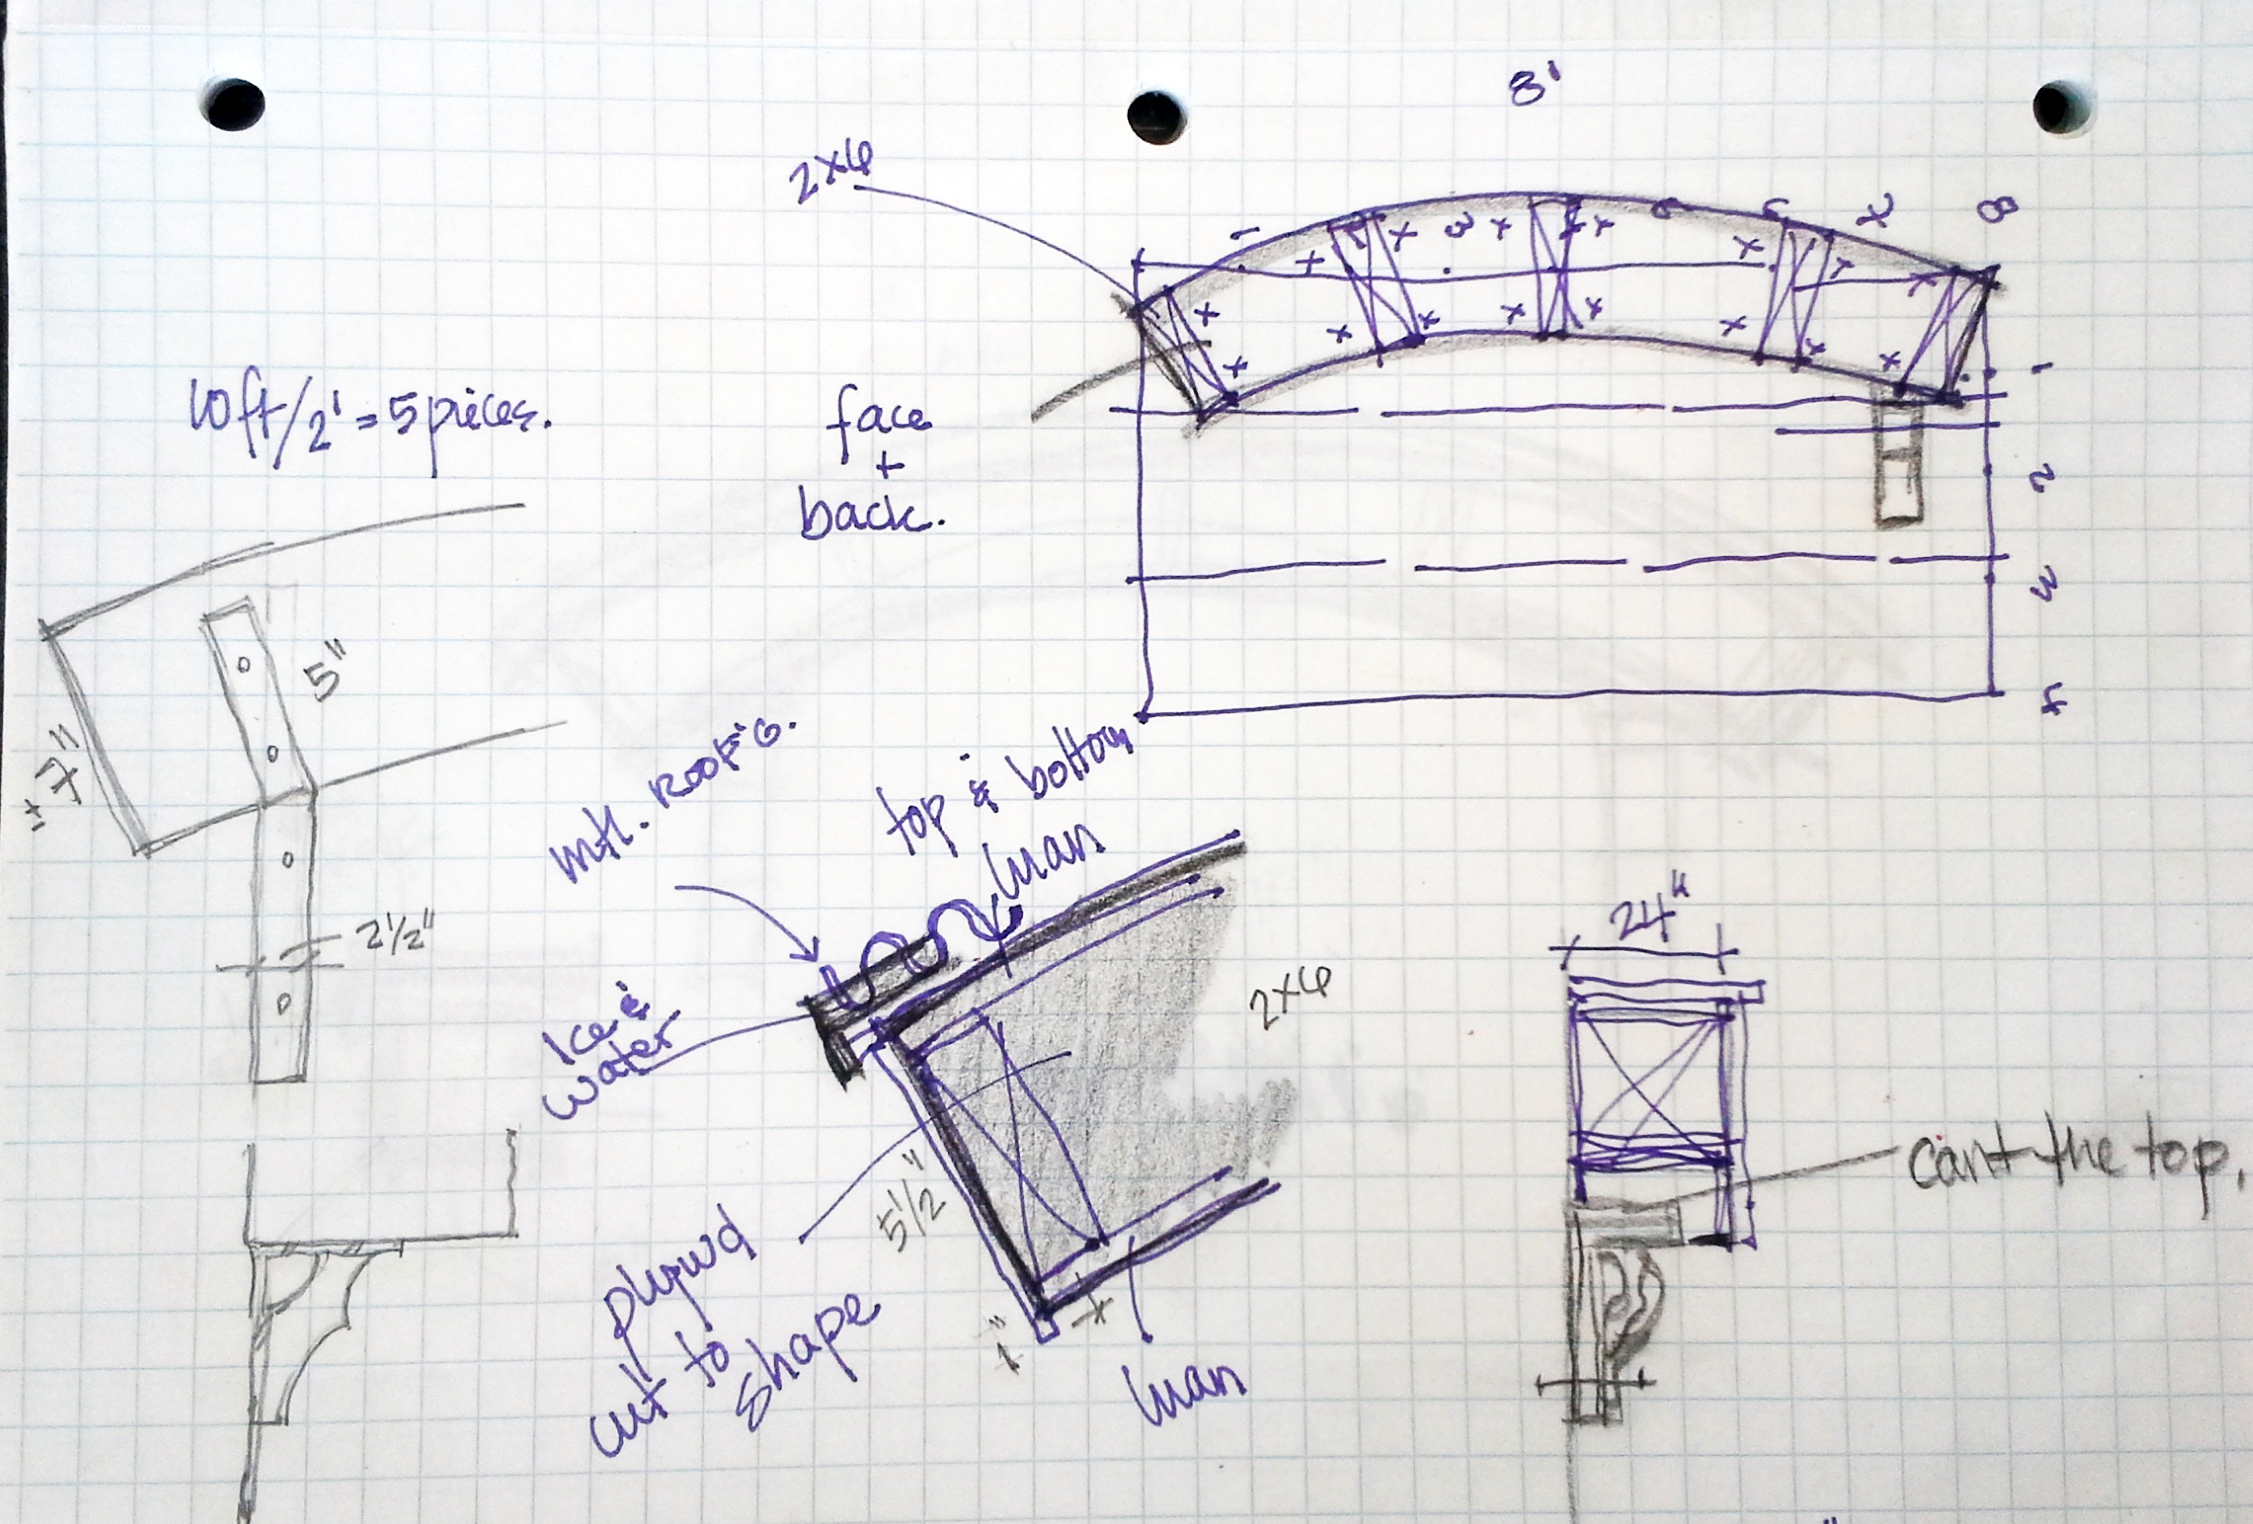 8'
2x6
1
3
7
8
10ft/2' = 5 pieces.
face
+
back.
1
2
3
4
5"
± 7"
2½"
mtl. roof'g.
top & bottom
luan
Ice &
water
2x6
5½"
plywd
cut to
shape
1"
luan
24"
cant the top.